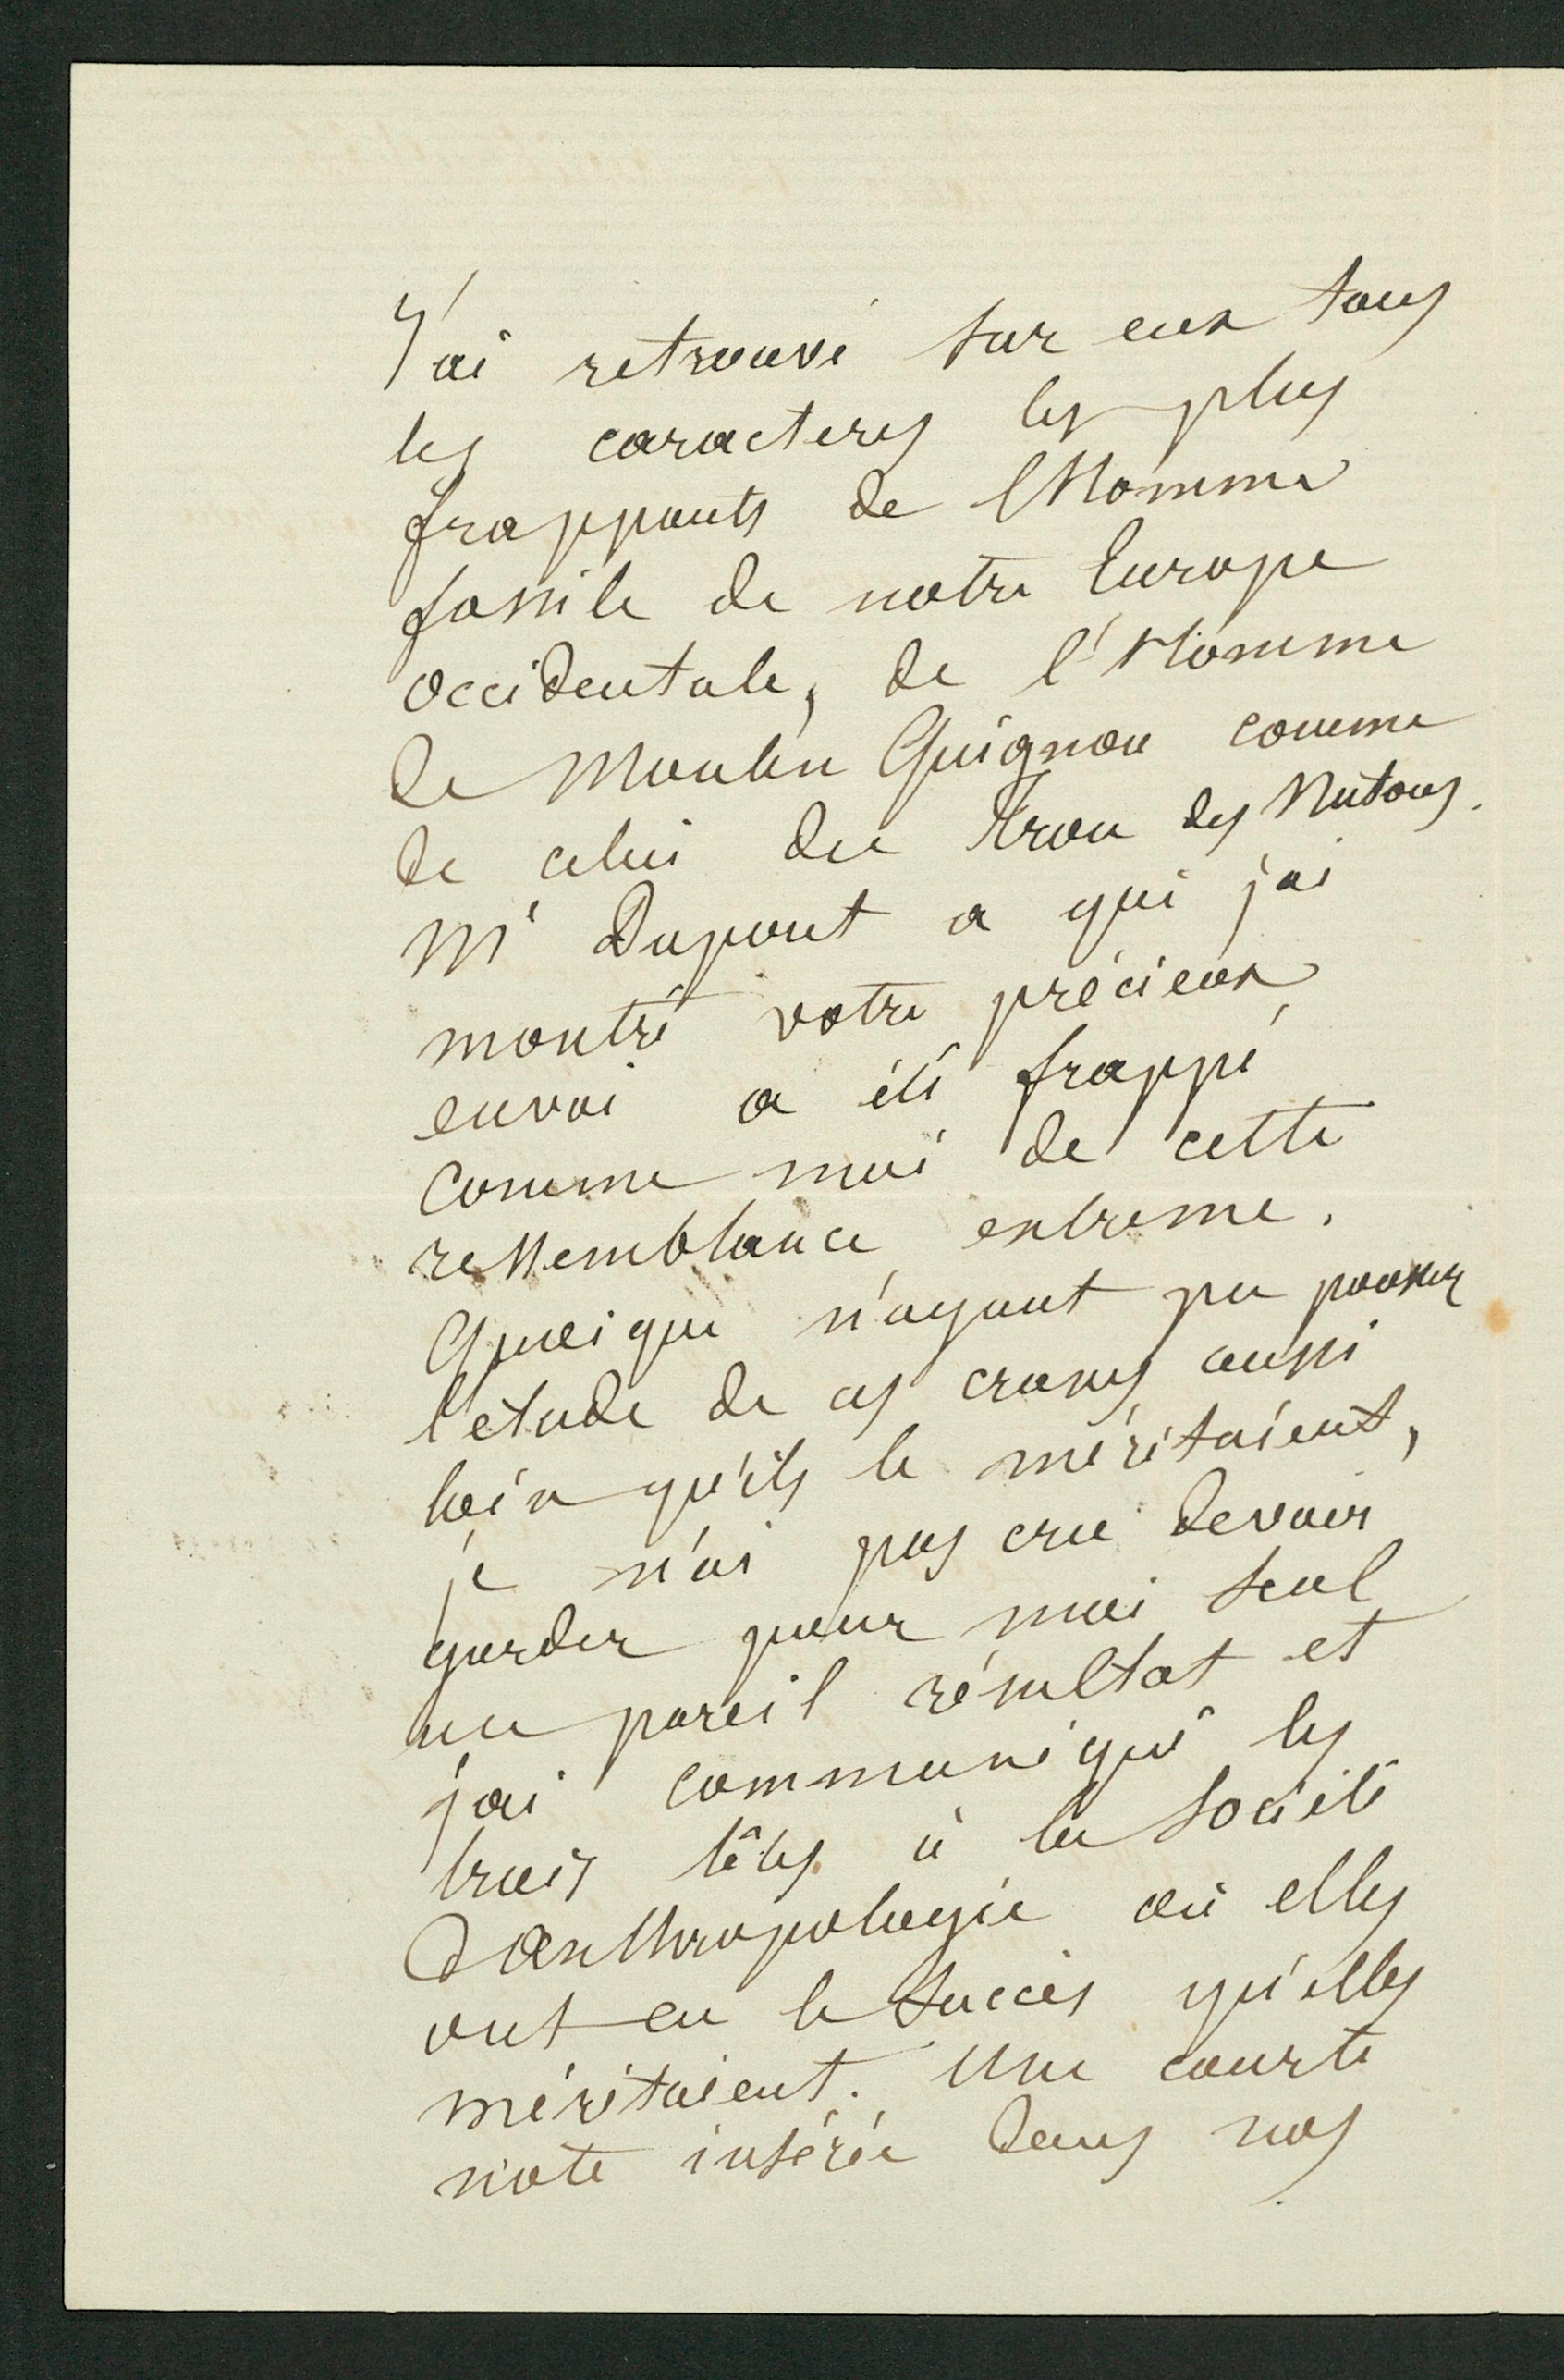 J'ai retrouvé sur eux tous
les caracteres les plus
frappants de l'Homme
fossile de notre Europe
occidentale, de l'Homme
de Moulin Quignon comme
de celui du Trou des Nutons.
Mr Dupont a qui j'ai
montré votre précieux
envoi a été frappé
comme moi de cette
ressemblance extreme.
Quoique n'ayant pu pousser
l'etude de ces cranes aussi
loin qu'ils le méritaient,
je n'ai pas cru devoir
garder pour moi seul
un pareil résultat et
j'ai communiqué les
trois têtes à la Société
d'anthropologie où elles
ont eu le succès qu'elles
méritaient. Une courte
note insérée dans nos